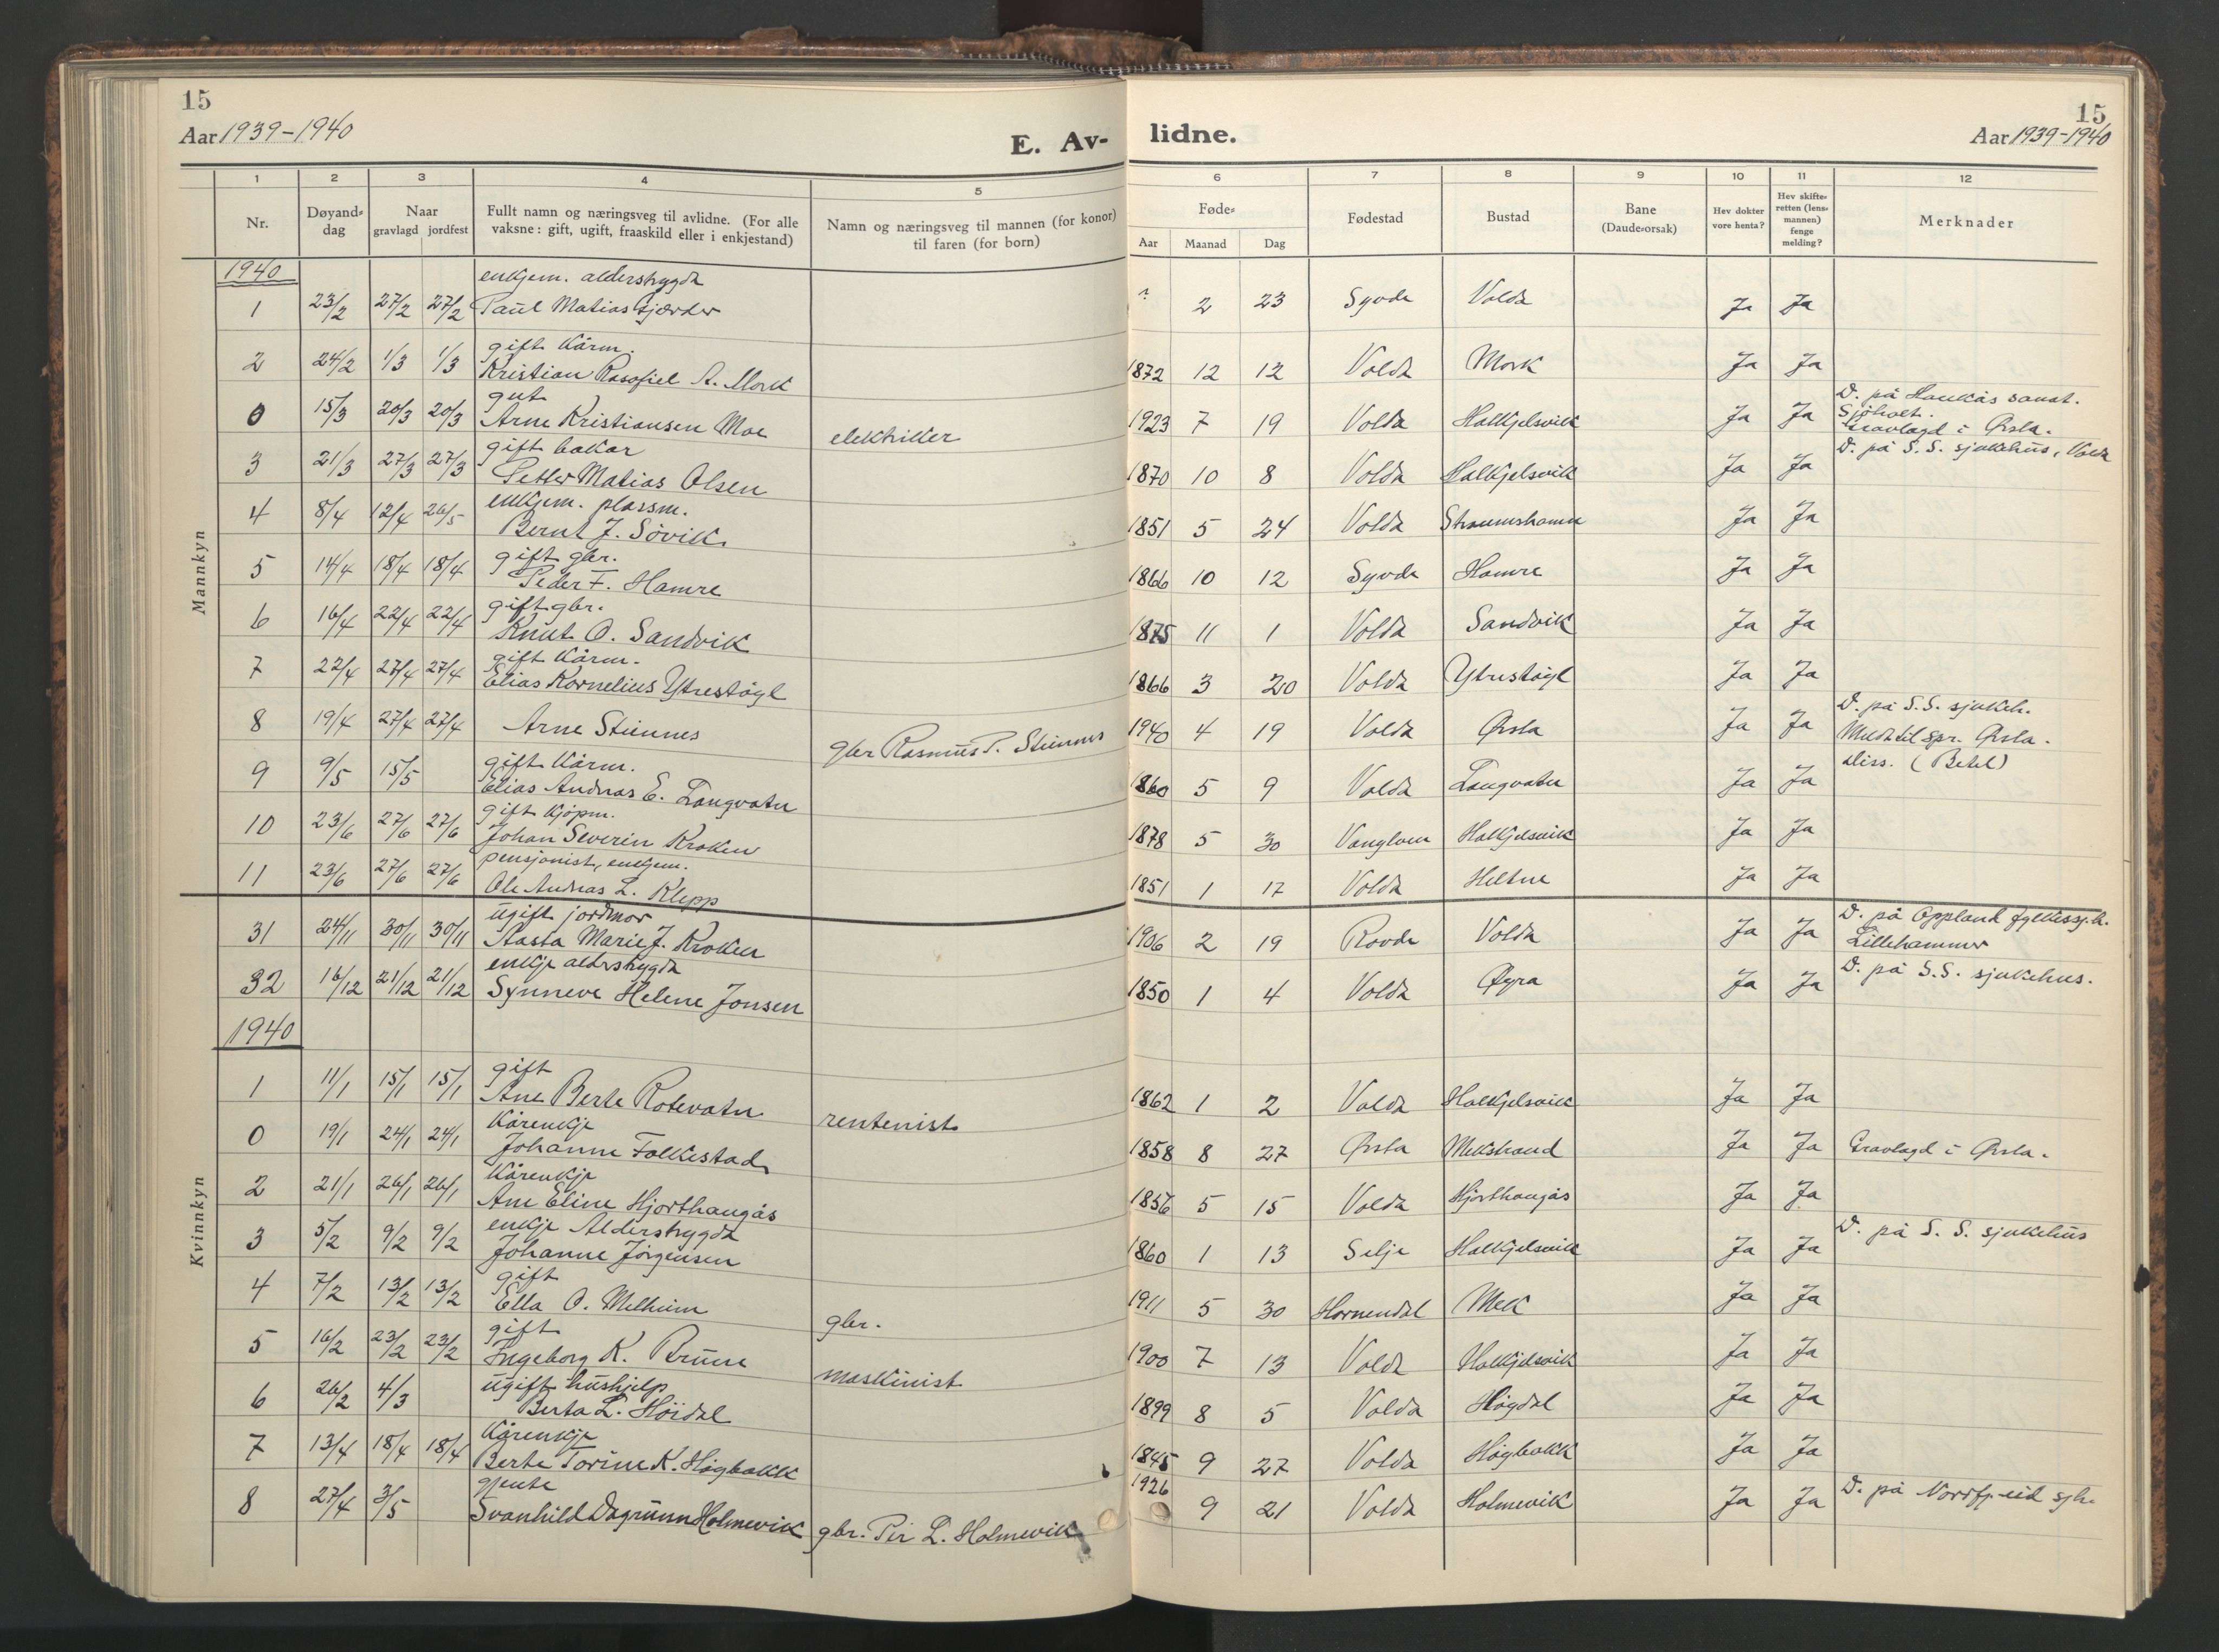 15
Aar 1939-1940
E. Av-
lidne.
15
Aar 1939-1940
1 2 3 4 5 6 7 8 9 10 11 12
Nr.
Døyand-
dag
Naar
gravlagd jordfest
Fullt namn og næringsveg til avlidne. (For alle
vaksne: gift, ugift, fraaskild eller i enkjestand)
Namn og næringsveg til mannen (for konor)
til faren (for born)
Føde-
Aar Maanad Dag
Fødestad
Bustad
Bane
(Daude-orsak)
Hev dokter
vore henta?
Hev skifte-
retten (lens-
mannen)
fenge
melding?
Merknader
Mannkyn
1940
enkjem. alderstrygda
1 23/2 27/2 27/2 Paul Matias Gjærder ? 2 23 Syvde Volda Ja Ja
gift kårm.
2 24/2 1/3 1/3 Kristian Rasofiel A. Mork 1872 12 12 Volda Mork Ja Ja
gut
0 15/3 20/3 20/3 Arne Kristiansen Moe elektriker 1923 7 19 Volda Halkjelsvik Ja Ja
D. på Haukås sanat.
Sjøholt.
Gravlagd i Ørsta.
gift bakar
3 21/3 27/3 27/3 Petter Matias Olsen 1870 10 8 Volda Halkjelsvik Ja Ja D. på S. S. sjukehus, Volda
enkjem. plassm.
4 8/4 12/4 26/5 Bernt J. Søvik 1851 5 24 Volda Straumshamn Ja Ja
gift gbr.
5 14/4 18/4 18/4 Peder F. Hamre 1866 10 12 Syvde Hamre Ja Ja
gift gbr.
6 16/4 22/4 22/4 Knut O. Sandvik 1875 11 1 Volda Sandvik Ja Ja
gift kårm.
7 22/4 27/4 27/4 Elias Kornelius Ytrestøyl 1866 3 20 Volda Ytrestøyl Ja Ja
8 19/4 27/4 27/4 Arne Steinnes gbr Rasmus P. Steinnes 1940 4 19 Volda Ørsta Ja Ja
D. på S.S. sjukeh.
Meldt til spr. Ørsta.
gift kårm.
9 9/5 15/5 Elias Andreas E. Langvatn 1860 5 9 Volda Langvatn Ja Ja diss. (Betel)
gift kjøpm.
10 23/6 27/6 27/6 Johan Severin Kroken 1878 5 30 Vanylven Halkjelsvik Ja Ja
pensjonist, enkjem.
11 23/6 27/6 27/6 Ole Andreas L. Klepp 1851 1 17 Volda Heltne Ja Ja
Kvinnkyn
ugift jordmor
31 24/11 30/11 30/11 Aasta Marie J. Kroken 1906 2 19 Rovde Volda Ja Ja
D. på Oppland fylkessj.h.
Lillehammer
enkje alderstrygda
32 16/12 21/12 21/12 Synneve Helene Jonsen 1850 1 4 Volda Øyra Ja Ja D. på S.S. sjukehus.
1940
gift
1 11/1 15/1 15/1 Ane Berte Rotevatn rentenist 1862 1 2 Volda Halkjelsvik Ja Ja
Kårenkje
0 19/1 24/1 24/1 Johanne Folkestad 1858 8 27 Ørsta Mekstrand Ja Ja Gravlagd i Ørsta.
Kårenkje
2 21/1 26/1 26/1 Ane Eline Hjorthaugås 1856 5 15 Volda Hjorthaugås Ja Ja
enkje Alderstrygda
3 5/2 9/2 9/2 Johanne Jørgensen 1860 1 13 Selje Halkjelsvik Ja Ja D. på S. S. sjukehus
gift
4 7/2 13/2 13/2 Ella O. Melheim gbr. 1911 5 30 Hornendal Mek Ja Ja
gift
5 16/2 23/2 23/2 Ingeborg K. Brune maskinist 1900 7 13 Volda Halkjelsvik Ja Ja
ugift hushjelp
6 26/2 4/3 Berta L. Høidal 1899 8 5 Volda Høgdal Ja Ja
Kårenkje
7 13/4 18/4 18/4 Berte Torine K. Høgbakk 1845 9 27 Volda Høgbakk Ja Ja
gjente
8 27/4 3/5 Svanhild Dagrunn Holmevik gbr. Per L. Holmevik 1926 9 21 Volda Holmevik Ja Ja D. på Nordfj.eid sjh.